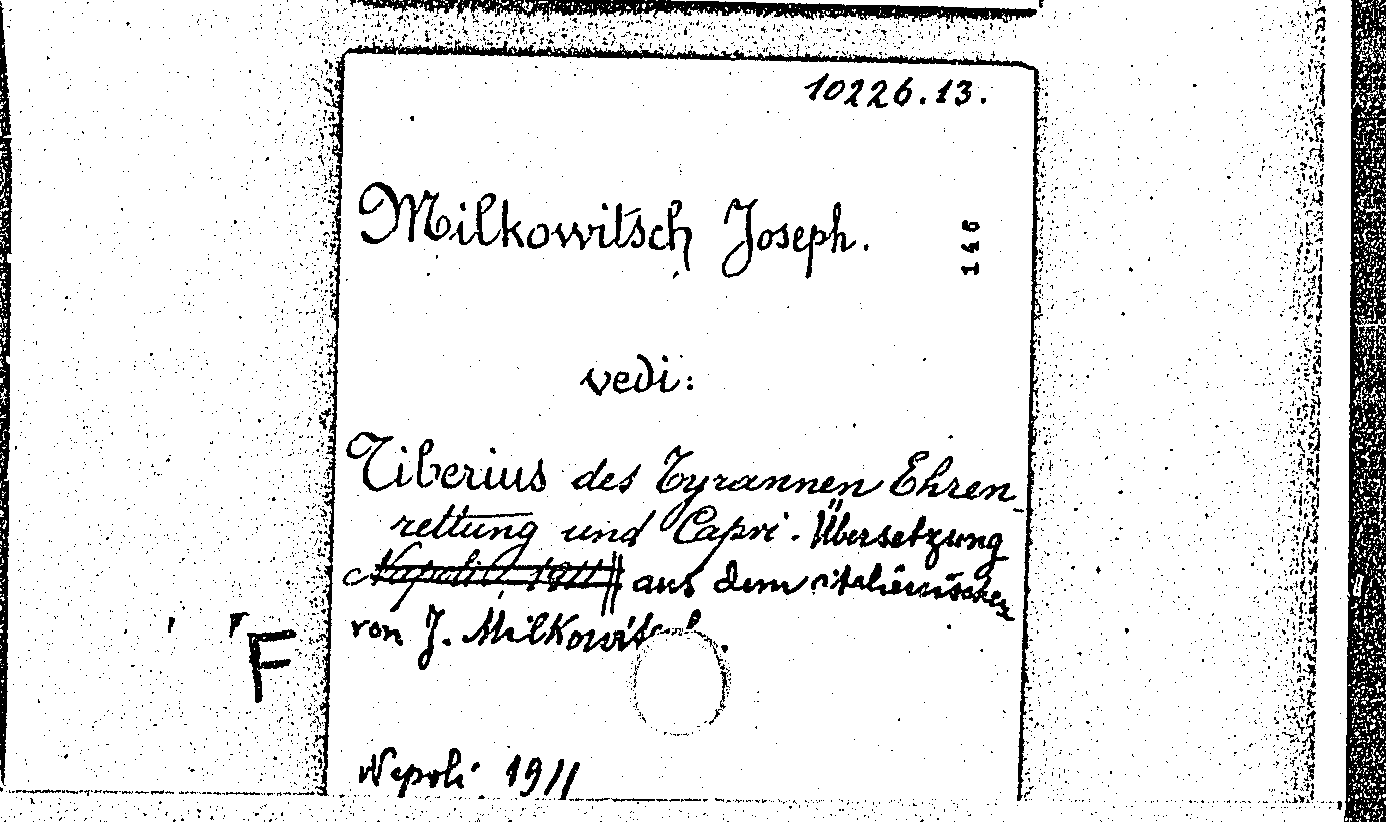 10226.13.
Milkowitsch Joseph.
146
vedi:
Tiberius des Tyrannen Ehren-
rettung und Capri. Übersetzung
Napoli, 1911 aus dem italienischen
von J. Milkowitsch.
F
Napoli 1911